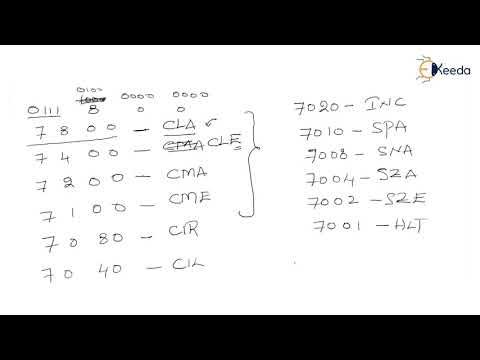 Ekeeda
0100
1000 0000 0000
0111 8 0 0
7 8 0 0 — CLA
7 4 0 0 — CMA CLE
7 2 0 0 — CMA
7 1 0 0 — CME
7 0 80 — CIR
7 0 40 — CIL
7020 — INC
7010 — SPA
7008 — SNA
7004 — SZA
7002 — SZE
7001 — HLT